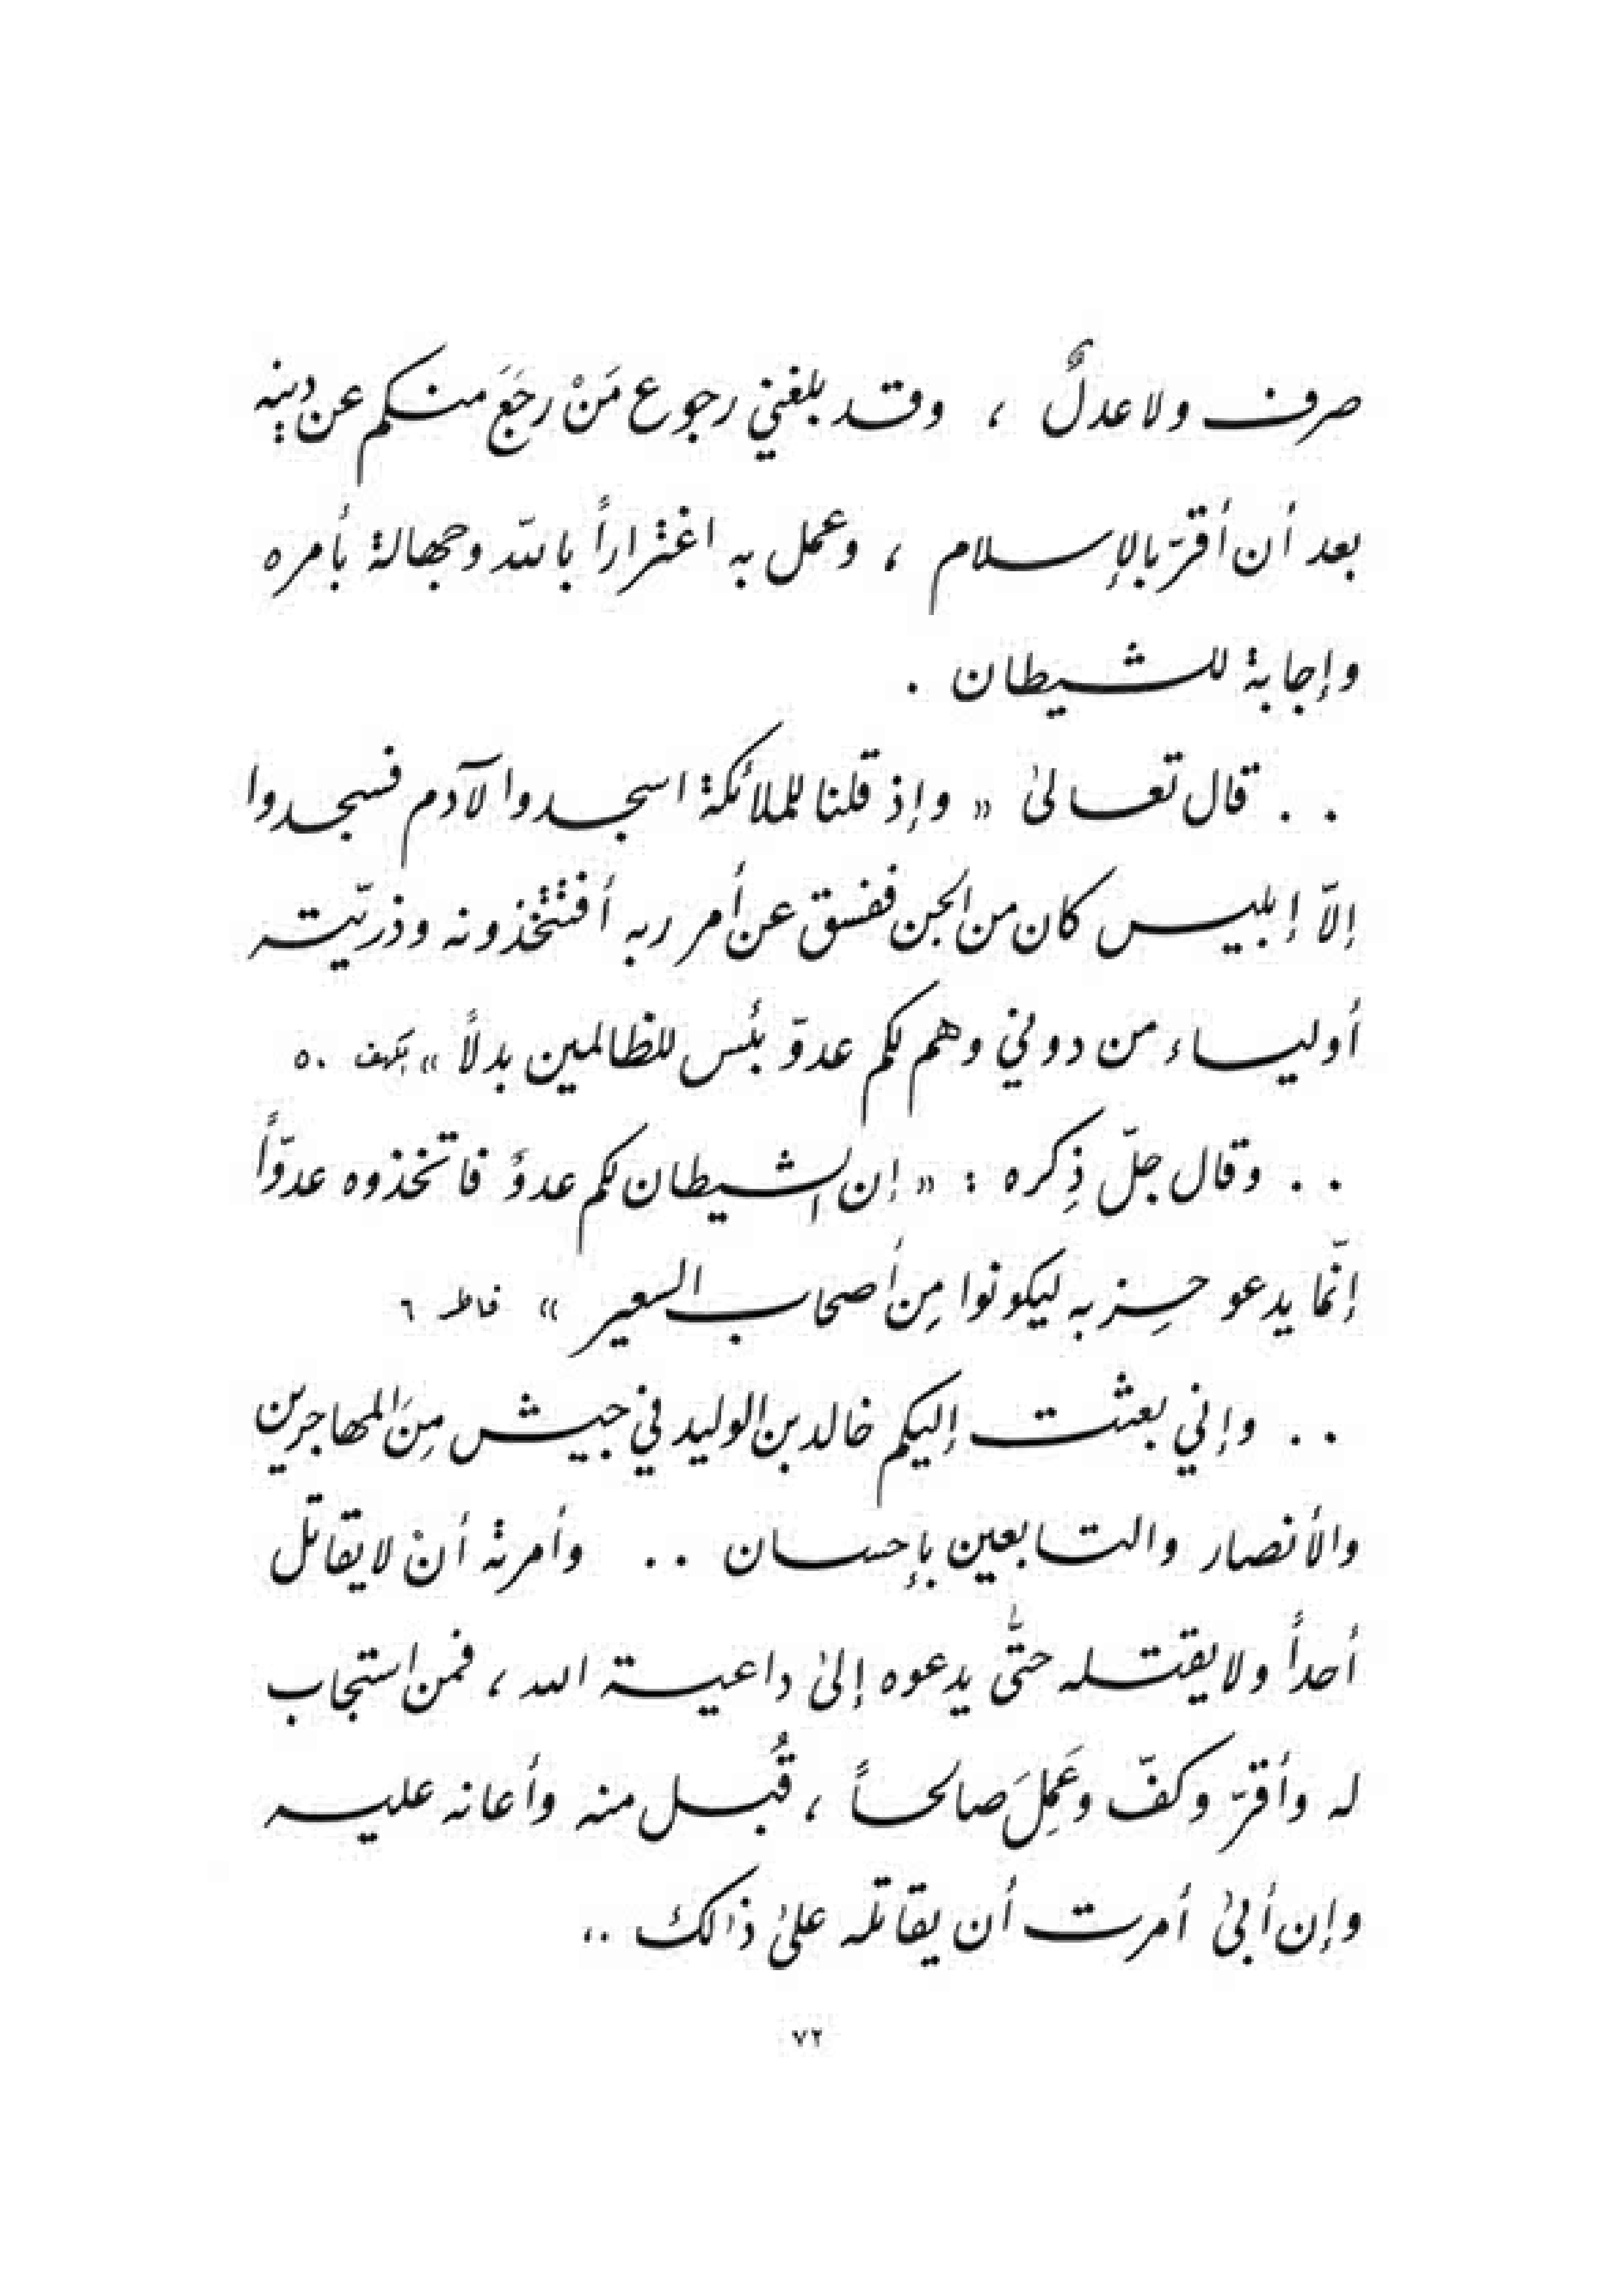 صرف ولا عدلٌ ، وقد بلغني رجوع مَنْ رجَعَ منكم عن دينِه
بعد أن أقرّ بالإسلام ، وعمل به اغتراراً بالله وجهالة بأمره
وإجابة للشيطان .
. . قال تعالىٰ « وإذ قلنا للملائكة اسجدوا لآدم فسجدوا
إلاّ إبليس كان من الجن ففسق عن أمر ربه أفتتخذونه وذريّته
أولياء من دوني وهم لكم عدوّ بئس للظالمين بدلاً » كهف ٥٠
. . وقال جلّ ذِكره : « إن الشيطان لكم عدوٌ فاتخذوه عدوّاً
إنّما يدعو حِزبه ليكونوا مِن أصحاب السعير » فاطر ٦
. . وإني بعثت إليكم خالد بن الوليد في جيش مِنَ المهاجرين
والأنصار والتابعين بإحسان . . وأمرته أنْ لا يقاتل
أحداً ولا يقتله حتَّى يدعوه إلىٰ داعية الله ، فمن استجاب
له وأقرّ وكفّ وعَمِلَ صالحاً ، قُبل منه وأعانه عليه
وإن أبىٰ أمرت أن يقاتله علىٰ ذٰلك ..
٧٢